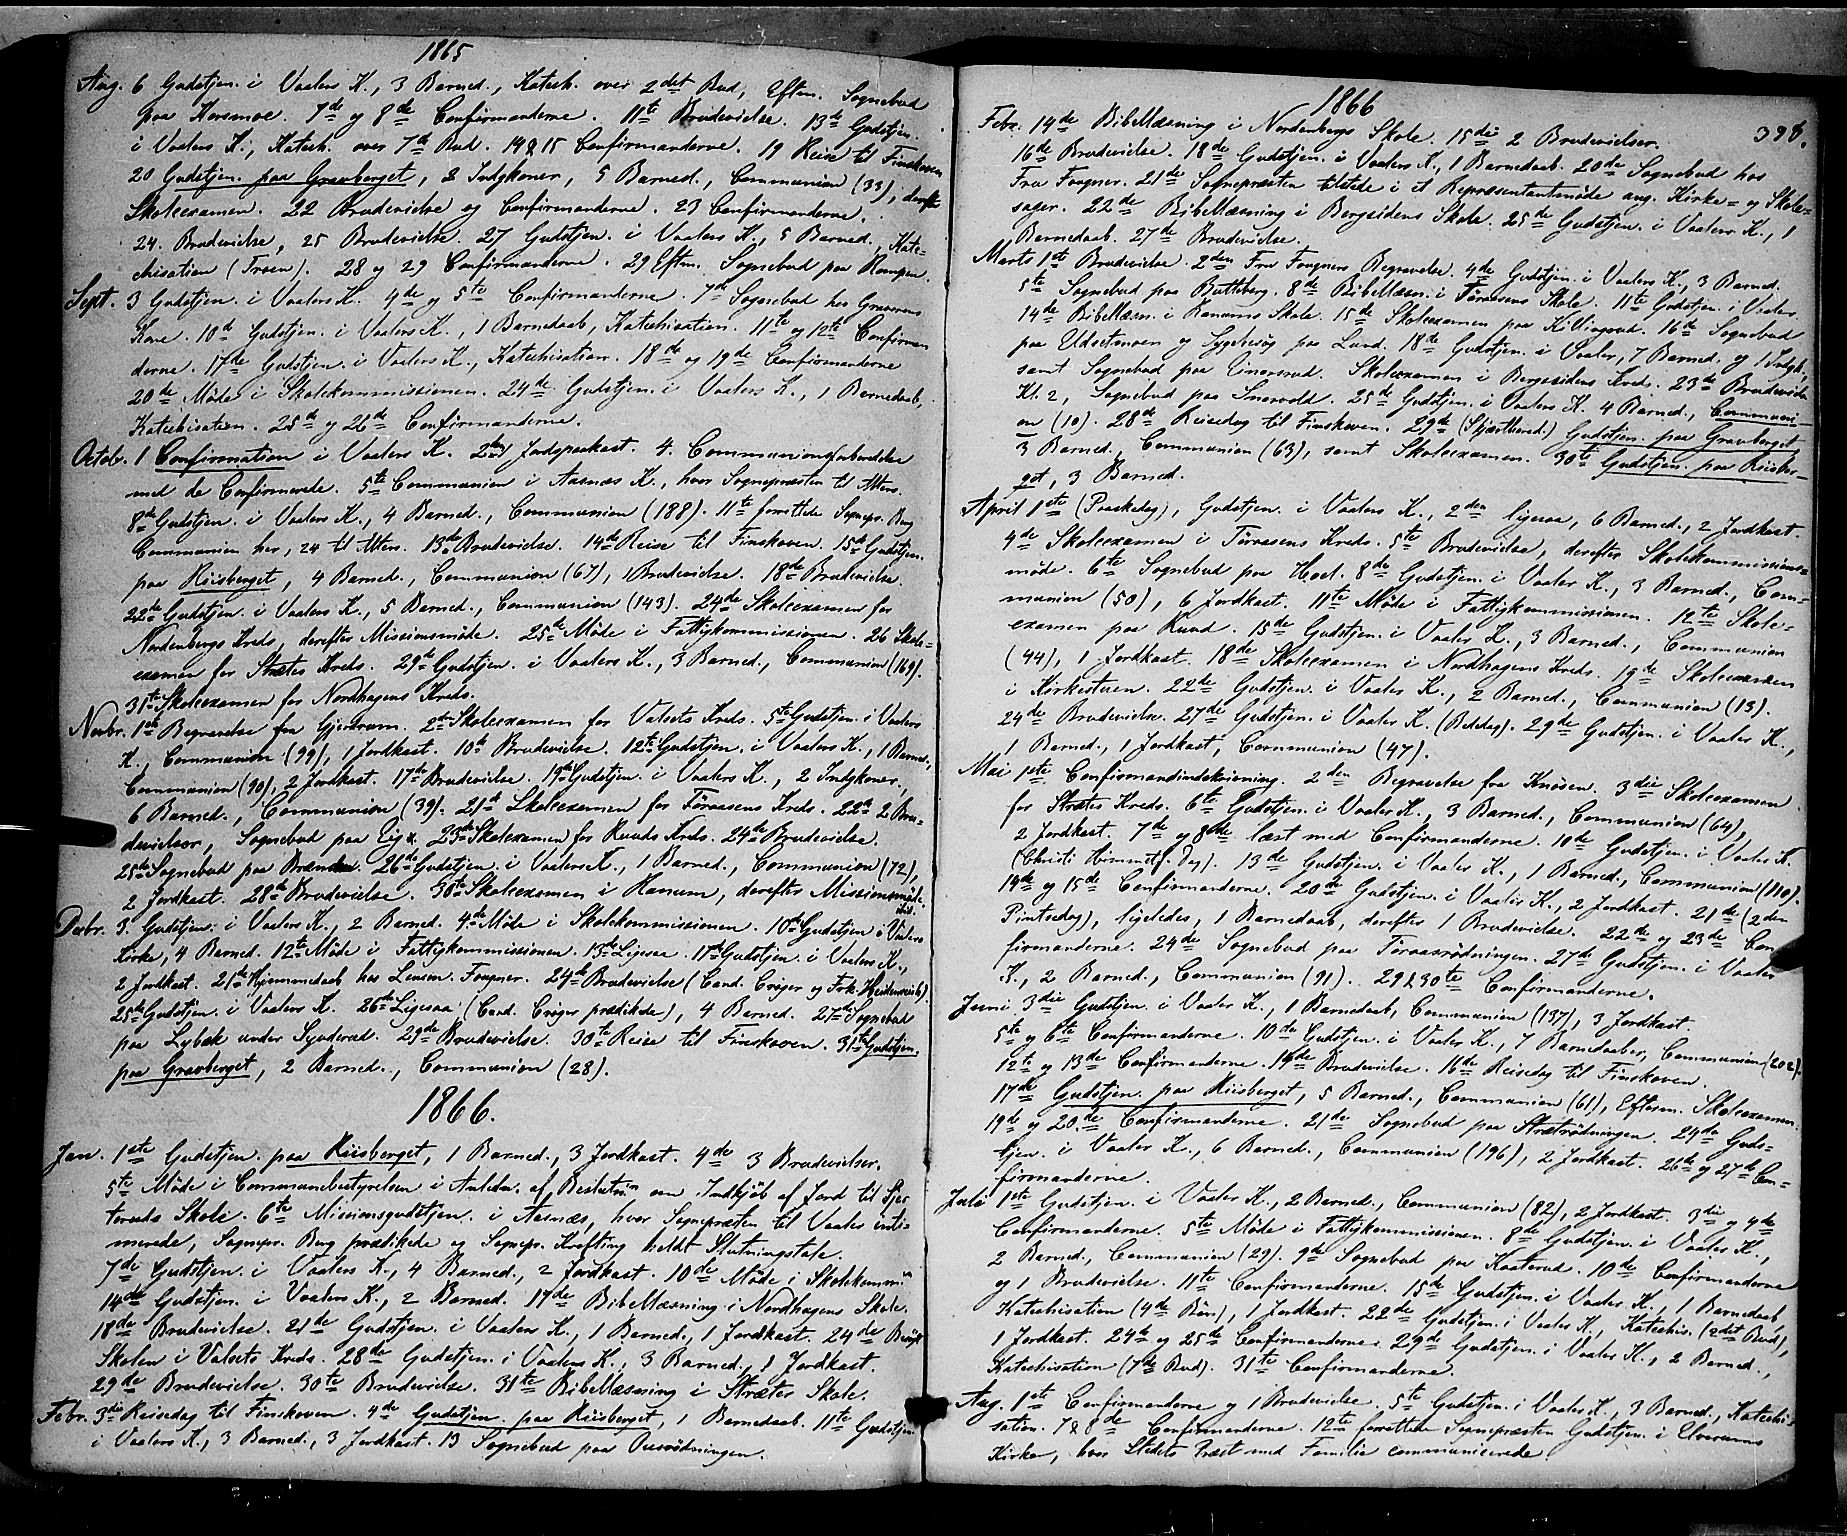 1865
Aug. 6 Gudstjen. i Vaalers K., 3 Barned., Katech. over 2det Bud, Eften. Sognebud
paa Korsmoe. 7de og 8de Confirmanderne. 11te Brudevielse. 13de Gudstjen.
i Vaalers K., Katech. over 7de Bud. 14 & 15 Confirmanderne. 19 Reise til Finskoven
20 Gudstjen. paa Gravberget, 2 Indgkoner, 5 Barned., Communion (33), derefter
Skoleexamen. 22 Brudevielse og Confirmanderne. 23 Confirmanderne.
24. Brudevielse, 25 Brudevielse. 27 Gudstjen. i Vaalers K., 5 Barned., Kate-
chisation (Troen). 28 og 29 Confirmanderne. 29 Eftm. Sognebud paa Rampen.
Sept. 3 Gudstjen. i Vaalers K. 4de og 5te Confirmanderne. 7de Sognebud hos Graverens
Kone. 10de Gudstjen. i Vaalers K., 1 Barnedaab, Katechisation. 11te og 12te Confirman
derne. 17de Gudstjen. i Vaalers K., Katechisation. 18de og 19de Confirmanderne
20de Møde i Skolekommissionen. 24de Gudstjen. i Vaalers K., 1 Barnedaab,
Katechisation. 25de og 26de Confirmanderne.
Octob. 1 Confirmation i Vaalers K. 2den Jordpaakast. 4. Communionsforberedelse
med de Confirmerede. 5te Communion i Aasnæs K., hvor Sognepræsten til Alters.
8de Gudstjen. i Vaalers K., 4 Barned., Communion (188). 11te forrettede Sognepr. Berg
Communion her, 24 til Alters. 13de Brudevielse. 14de Reise til Finskoven. 15de Gudstjen.
paa Riisberget, 4 Barned., Communion (67), 1 Brudevielse. 18de Brudevielse.
22de Gudstjen. i Vaalers K., 5 Barned., Communion (143). 24de Skoleexamen for
Nordenbergs Kreds, derefter Missionsmøde. 25de Møde i Fattigkommissionen. 26 Skole-
examen for Strætes Kreds. 29de Gudstjen. i Vaalers K., 3 Barned., Communion (169).
31te Skoleexamen for Nordhagens Kreds.
Novbr. 1ste Begravelse fra Gjerdrum. 2de Skoleexamen for Valsets Kreds. 5te Gudstjen. i Vaalers
K., Communion (99), 1 Jordkast. 10de Brudevielse. 12te Gudstjen. i Vaalers K., 1 Barned.,
Communion (90), 2 Jordkast. 17de Brudevielse. 19de Gudstjen. i Vaalers K., 2 Indgkoner,
6 Barned., Communion (39). 21de Skoleexamen for Føraasens Kreds. 22de 2 Bru-
devielser, Sognebud paa Eid. 23de Skoleexamen for Ruuds Kreds. 24de Brudevielse.
25de Sognebud paa Branden. 26de Gudstjen. i Vaalers K., 1 Barned., Communion (72),
2 Jordkast. 28de Brudevielse. 30te Skoleexamen i Hanum, derefter Missionsmøde
ibid.
Decbr. 3. Gudstjen. i Vaalers K., 2 Barned. 4de Møde i Skolekommissionen. 10de Gudstjen. i Vaalers
Kirke, 4 Barned. 12te Møde i Fattigkommissionen. 13de Ligesaa. 17de Gudstjen. i Vaalers K.,
2 Jordkast. 21de Hjemmedaab hos Lensm. Fougner. 24de Brudevielse (Cand. Crøger og Frk. Heidenreich).
25de Gudstjen. i Vaalers K. 26de Ligesaa (Cand. Crøger prædikede), 4 Barned. 27de Sognebud
paa Lybæk under Synderud. 29de Brudevielse. 30te Reise til Finskoven. 31te Gudstjen.
paa Gravberget, 2 Barned., Communion (28).
1866.
Jan. 1ste Gudstjen. paa Riisberget, 1 Barned., 3 Jordkast. 4de 3 Brudevielser.
5te Møde i Communebestyrelsen i Anledn. af Beslutn om Indkjøb af Jord til Sjer
teruds Skole. 6te Missionsgudstjen. i Aasnæs, hvor Sognepræsten til Vaaler inti-
merede, Sognepr. Berg prædikede og Sognepr. Krefting heldt Slutningstale.
7de Gudstjen. i Vaalers K., 4 Barned., 2 Jordkast. 10de Møde i Skolekomm.
14de Gudstjen. i Vaalers K., 2 Barned. 17de Bibellæsning i Nordhagens Skole.
18de Brudevielse. 21de Gudstjen. i Vaalers K., 1 Barned., 1 Jordkast. 24de Besøgt
Skolen i Valsets Kreds. 28de Gudstjen. i Vaalers K., 3 Barned., 1 Jordkast.
29de Brudevielse. 30te Brudevielse. 31te Bibellæsning i Strætes Skole.
Febr. 3die Reisedag til Finskoven. 4de Gudstjen. paa Riisberget, 1 Barnedaab. 11te Gudstjen
i Vaalers K., 3 Barned., 3 Jordkast. 13 Sognebud paa Ousrødningen.
1866
398.
Febr. 14de Bibellæsning i Nordenbergs Skole. 15de 2 Brudevielser.
16de Brudevielse. 18de Gudstjen. i Vaalers K., 1 Barnedaab. 20de Sognebud hos
Fru Fougner. 21de Sognepræsten tilstede i et Repræsentantmøde ang. Kirke- og Skole-
sager. 22de Bibellæsning i Bergsidens Skole. 25de Gudstjen. i Vaalers K., 1
Barnedaab. 27de Brudevielse.
Marts 1ste Brudevielse. 2den Fru Fougners Begravelse. 4de Gudstjen. i Vaalers K., 3 Barned.
5te Sognebud paa Butteberg. 8de Bibellæsn. i Føraasens Skole. 11te Gudstjen. i Vaaler.
14de Bibellæsn. i Hanums Skole. 15de Skoleexamen paa Killingrud. 16de Sognebud
paa Udsetmoen og Sygebesøg paa Lund. 18de Gudstjen. i Vaaler, 7 Barned. og 1 Indgk.,
samt Sognebud paa Einersrud. Skoleexamen i Bergesidens Kreds. 23de Brudevielse
Kl. 2, Sognebud paa Snarvold. 25de Gudstjen. i Vaalers K. 4 Barned., Communi-
on (10). 28de Reisedag til Finskoven. 29de (Skjærthorsd.) Gudstjen. paa Gravberget
3 Barned., Communion (63), samt Skoleexamen. 30te Gudstjen. paa Riisber-
get, 3 Barned.
April 1ste (Paaskedag), Gudstjen. i Vaalers K., 2den ligesaa, 6 Barned., 2 Jordkast.
4de Skoleexamen i Føraasens Kreds. 5te Brudevielse, derefter Skolekommissions-
møde. 6te Sognebud paa Hoel. 8de Gudstjen. i Vaaler K., 3 Barned., Com-
munion (50), 6 Jordkast. 11te Møde i Fattigkommissionen. 12te Skole-
examen paa Ruud. 15de Gudstjen. i Vaaler K., 3 Barned., Communion
(44), 1 Jordkast. 18de Skoleexamen i Nordhagens Kreds. 19de Skoleexamen
i Kirkestuen. 22de Gudstjen. i Vaaler K., 2 Barned., Communion (13).
24de Brudevielse. 27de Gudstjen. i Vaaler K. (Bededag). 29de Gudstjen. i Vaaler K.,
1 Barned., 1 Jordkast, Communion (47).
Mai 1ste Confirmandindskrivning. 2den Begravelse fra Knusen. 3die Skoleexamen
for Strætes Kreds. 6te Gudstjen. i Vaaler K., 3 Barned., Communion (64),
2 Jordkast. 7de og 8de læst med Confirmanderne. 10de Gudstjen. i Vaaler K.
(Christi Himmelf. Dag). 13de Gudstjen. i Vaaler K., 1 Barned., Communion (110).
14de og 15de Confirmanderne. 20de Gudstjen. i Vaaler K., 2 Jordkast. 21de (2den
Pintsedag), ligeledes, 1 Barnedaab, derefter 1 Brudevielse. 22de og 23de Con-
firmanderne. 24de Sognebud paa Føraasrødningen. 27de Gudstjen. i Vaaler
K., 2 Barned., Communion (91). 29 & 30te Confirmanderne.
Juni 3die Gudstjen. i Vaaler K., 1 Barnedaab, Communion (137), 3 Jordkast.
5te og 6te Confirmanderne. 10de Gudstjen. i Vaaler K., 7 Barnedaaber, Communion (202).
12te og 13de Confirmanderne. 14de Brudevielse. 16te Reisedag til Finskoven.
17de Gudstjen. paa Riisberget, 5 Barned., Communion (61), Efterm. Skoleexamen.
19de og 20de Confirmanderne. 21de Sognebud paa Strætrødningen. 24de Guds-
tjen. i Vaaler K., 6 Barned., Communion (196), 2 Jordkast. 26de og 27de Con-
firmanderne.
Juli 1ste Gudstjen. i Vaaler K., 2 Barned., Communion (82), 2 Jordkast. 3die og 4de
Confirmanderne. 5te Møde i Fattigkommissionen. 8de Gudstjen. i Vaaler K.,
2 Barned., Communion (29). 9de Sognebud paa Kaaterud. 10de Confirmanderne
og 1 Brudevielse. 11te Confirmanderne. 15de Gudstjen. i Vaaler K., 1 Barnedaab
Katechisation (4de Bøn), 1 Jordkast. 22de Gudstjen. i Vaaler K., Katechis. (2det Bud),
1 Jordkast. 24de og 25de Confirmanderne. 29de Gudstjen. i Vaaler K., 2 Barned.,
Katechisation (7de Bud). 31te Confirmanderne.
Aug. 1ste Confirmanderne og 1 Brudevielse. 5te Gudstjen. i Vaaler K., 3 Barned., Katechi-
sation. 7 & 8de Confirmanderne. 12te forrettede Sognepræsten Gudstjen. i Elverums
Kirke, hvor Stedets Præst med Familie communicerede.